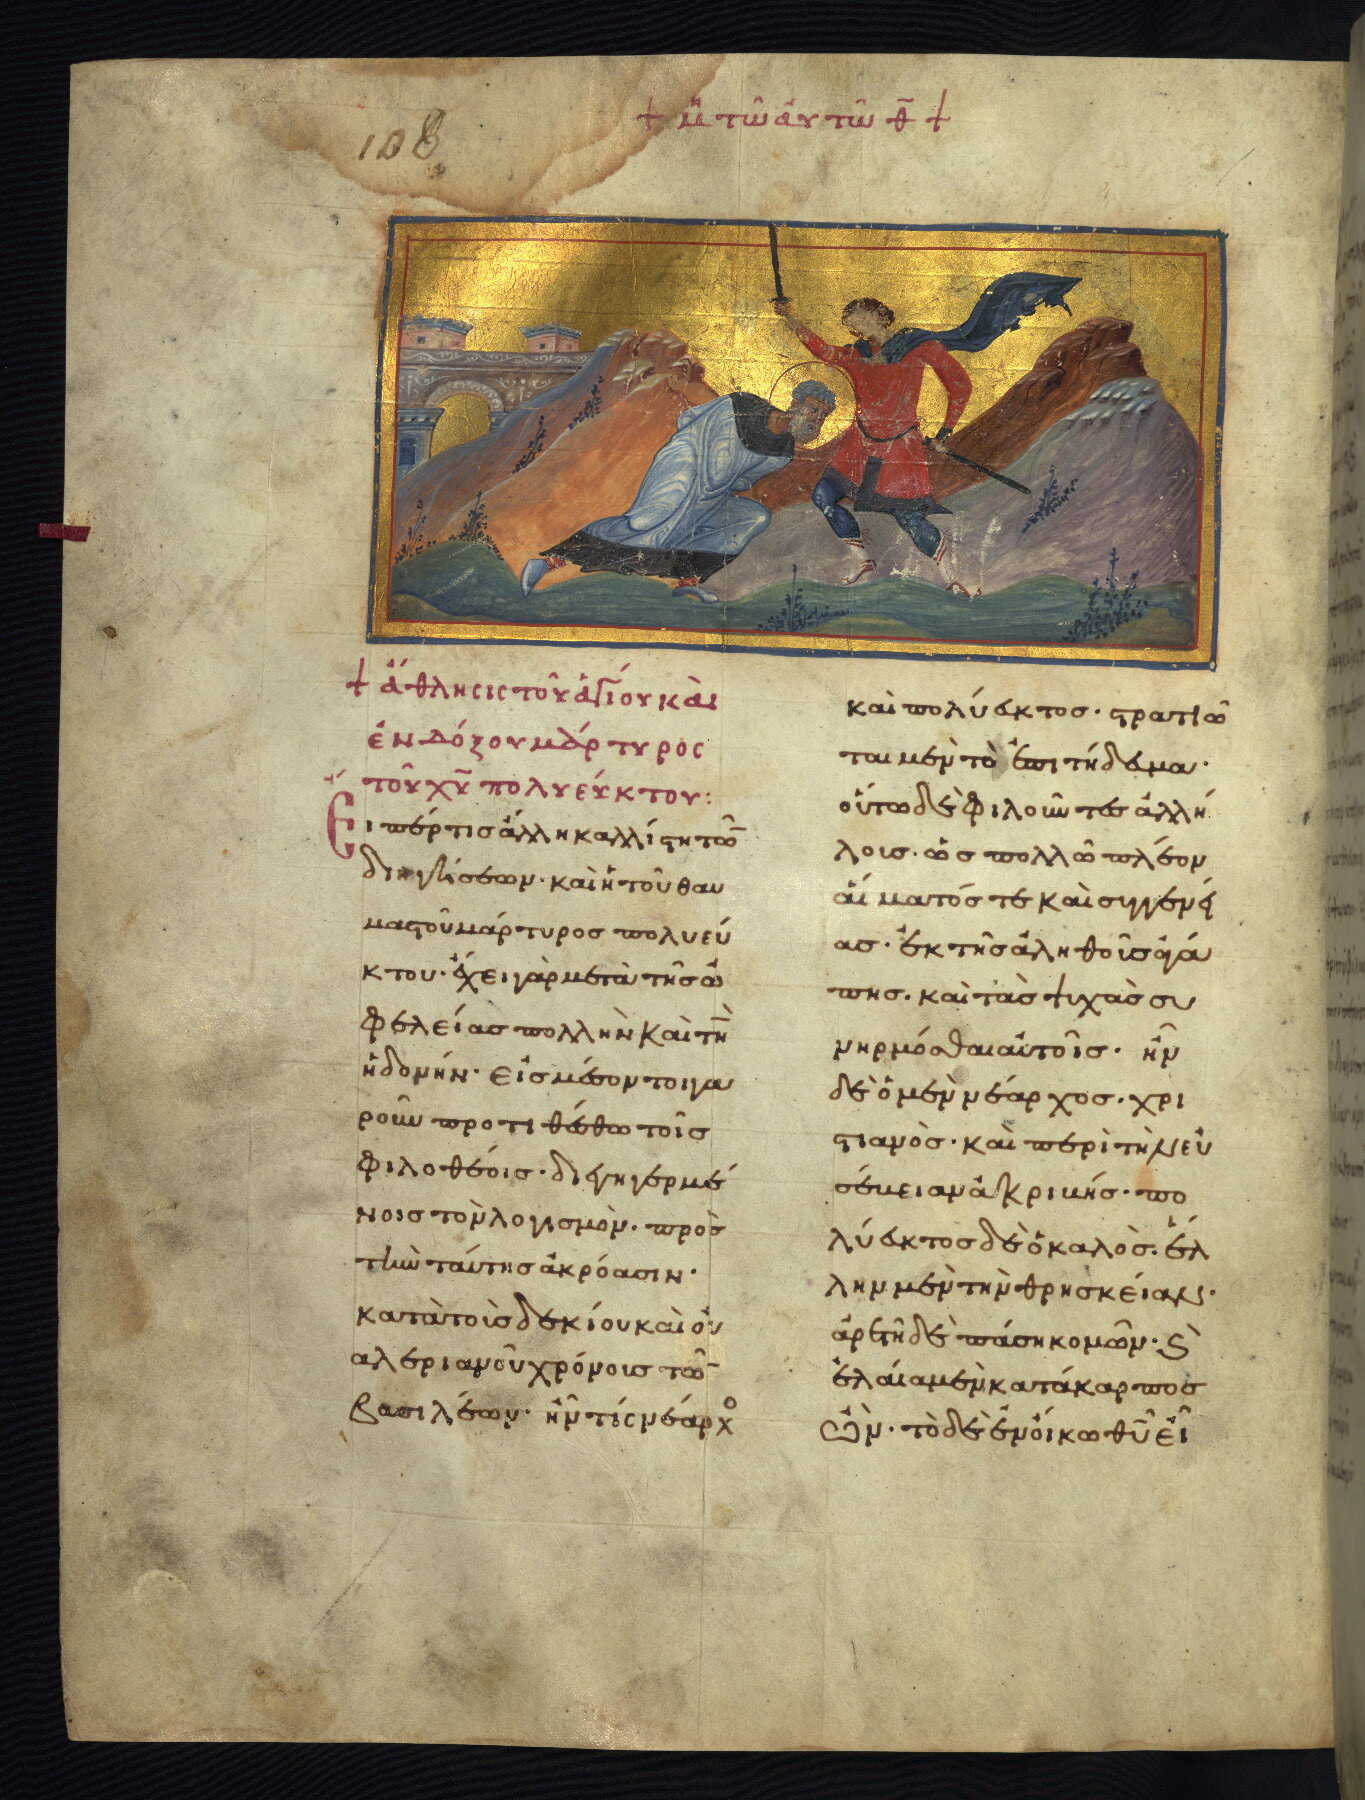 108
+ μη τῶ αὐτῶ θ̅ +
+ ἄθλησις τοῦ ἁγίου καὶ
ἐνδόξου μάρτυρος
τοῦ χυ̅ πολυεύκτου:
Εἴπέρ τις ἄλλη καλλίστη τῶν
διηγήσεων· καὶ ἡ τοῦ θαυ
μαστοῦ μάρτυρος πολυεύ
κτου· ἔχει γὰρ μετὰ τῆς ὠ
φελείας πολλὴν καὶ τὴν
ἡδονήν· εἰς μέσον τοιγα
ροῦν προτιθέσθω τοῖς
φιλοθέοις· διεγηγερμέ
νοις τὸν λογισμὸν· πρὸς
τὴν ταύτης ἀκρόασιν·
κατὰ τοὺς δεκίου καὶ οὐ
αλεριανοῦ χρόνους τῶν
βασιλέων· ἦν τίς νέαρχο
καὶ πολύεκτος· στρατιῶ
ται μὲν τὸ ἐπιτήδευμα·
οὕτω δὲ φιλοῦντες ἀλλή
λοις· ὡς πολλῶ πλέον
αἵματός τε καὶ συγγενεί
ας· ἐκ τῆς ἀληθοῦς ἀγά
πης· καὶ τὰς ψυχὰς συ
νηρμόσθαι αὐτοῖς· ἦν
δὲ ὁ μὲν νέαρχος· χρι
στιανὸς· καὶ περὶ τὴν εὐ
σέβειαν ἀκριβής· πο
λύεκτος δὲ ὁ καλὸς· ἕλ
λην μὲν τὴν θρησκείαν·
ἀρετῆ δὲ πάση κομῶν· καὶ
ἐλαία μὲν κατάκαρπος
ὢν· τὸ δὲ ἐν οἴκω θυ̅ εἶ